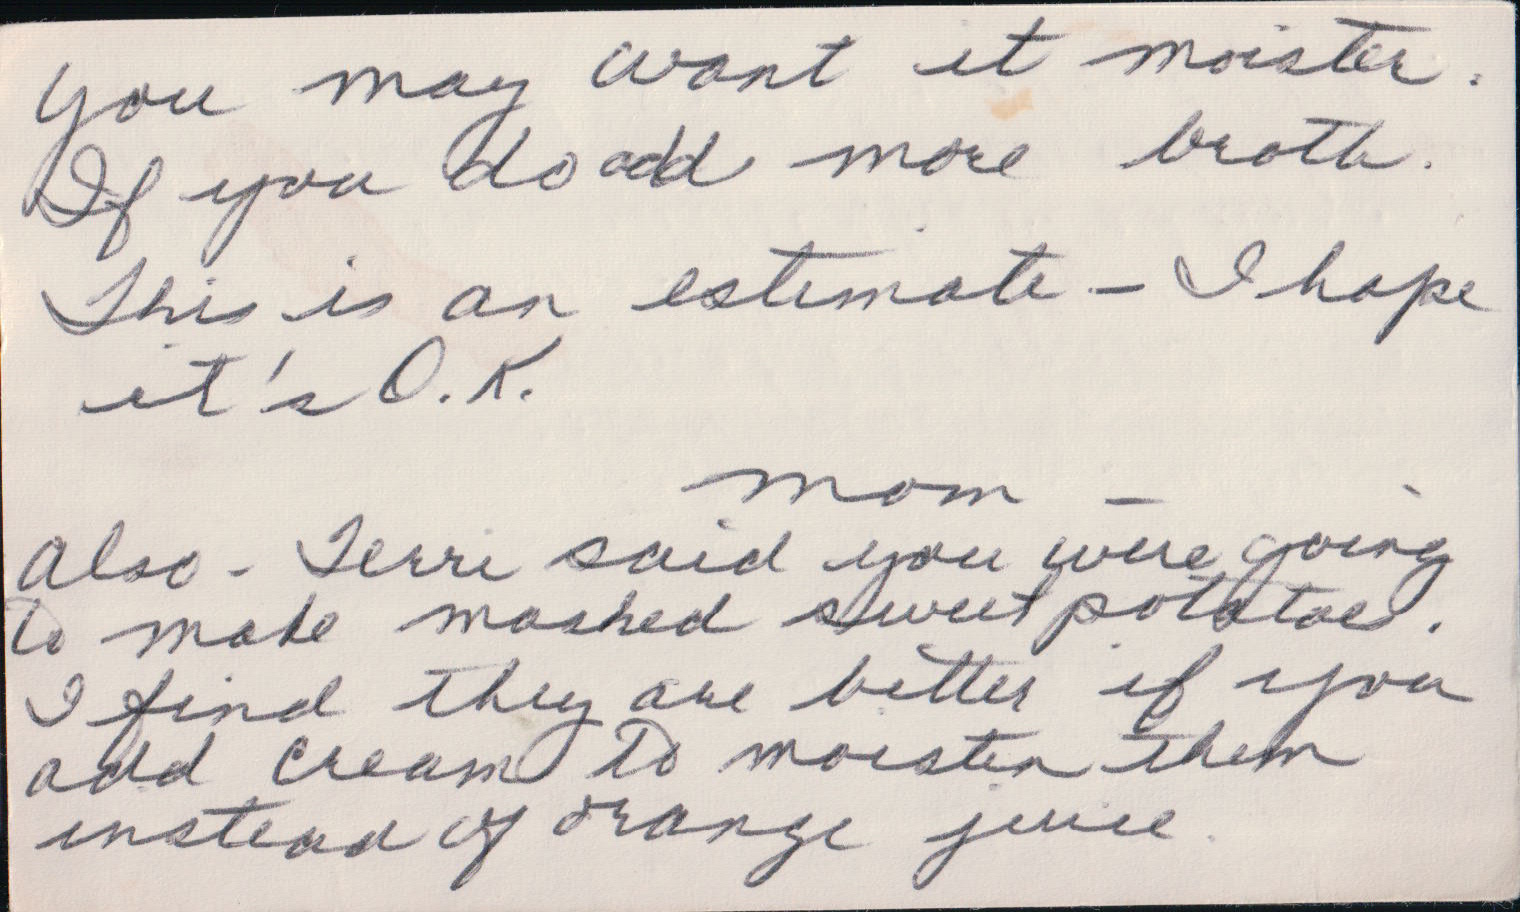 You may want it moister.
If you do add more broth.
This is an estimate - I hope
it's O.K.
Mom -
Also - Terri said you were going
to make mashed sweet potatoes.
I find they are better if you
add cream to moisten them
instead of orange juice.